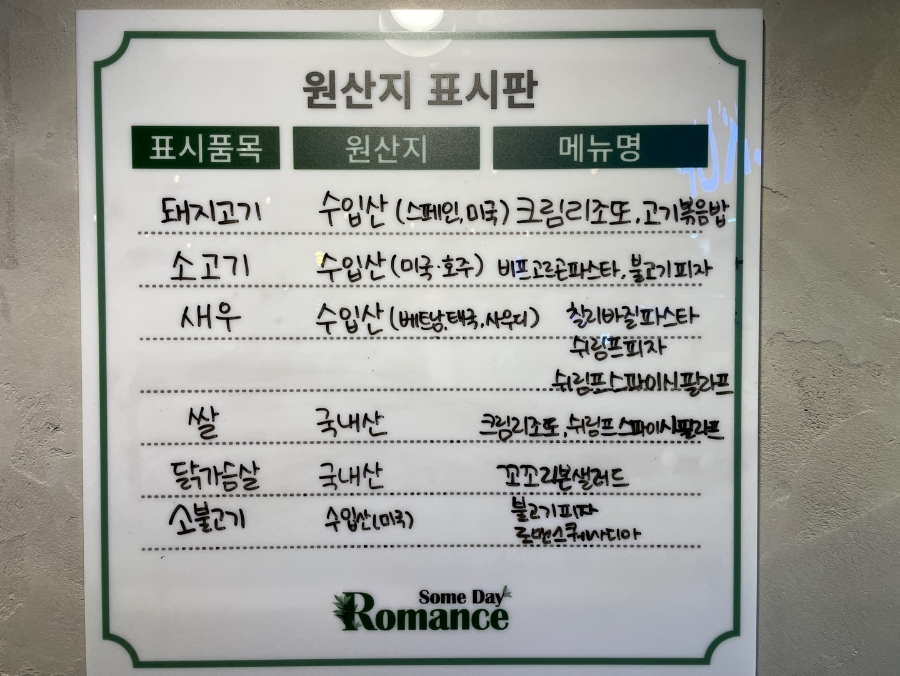 원산지 표시판
표시품목 원산지 메뉴명
돼지고기 수입산(스페인,미국) 크림리조또, 고기볶음밥
소고기 수입산(미국·호주) 비프고르곤파스타, 불고기피자
새우 수입산(베트남,태국,사우디) 칠리바질파스타
쉬림프피자
쉬림프스파이시필라프
쌀 국내산 크림리조또, 쉬림프스파이시필라프
닭가슴살 국내산 꼬꼬리본샐러드
소불고기 수입산(미국) 불고기피자
로맨스퀘사디아
Some Day
Romance